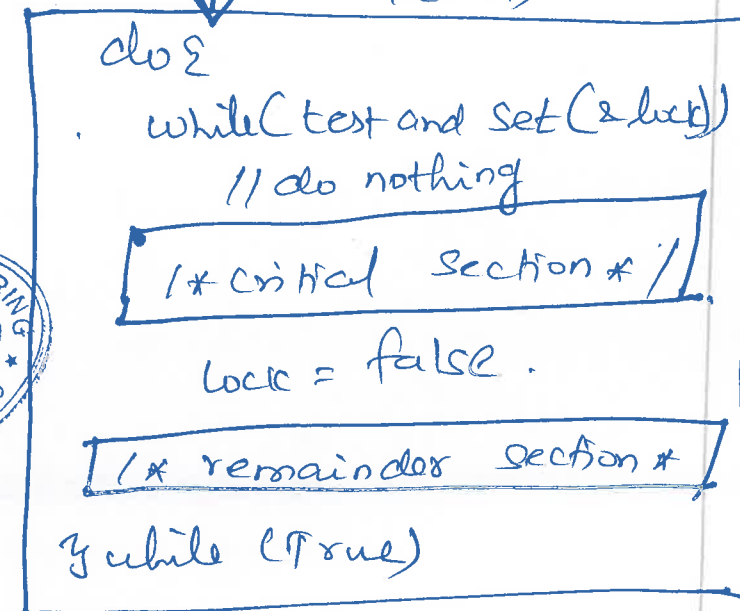 do {
while( test and set (& lock))
// do nothing
/* critical section */
lock = false.
/* remainder section */
} while (True)